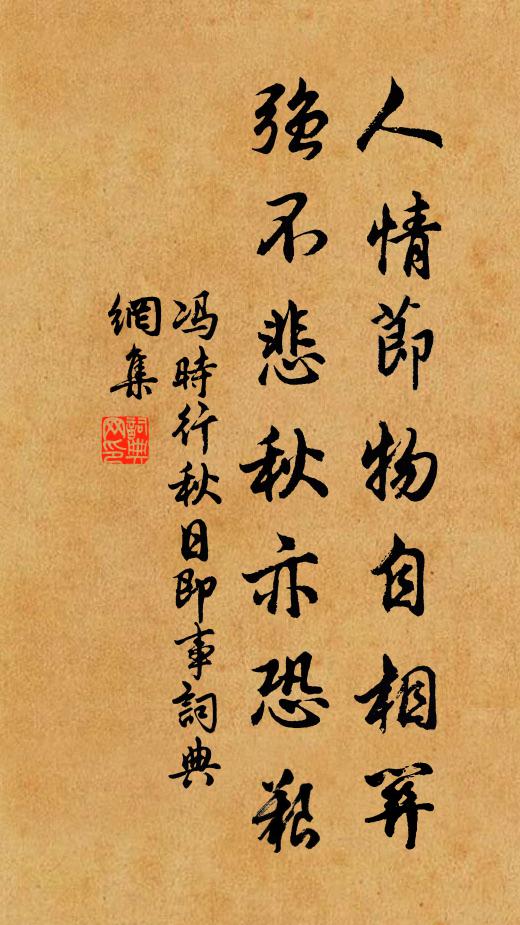 人情節物自相關
強不悲秋亦恐艱
馮時行秋日即事詞典
網集
詞典
网印